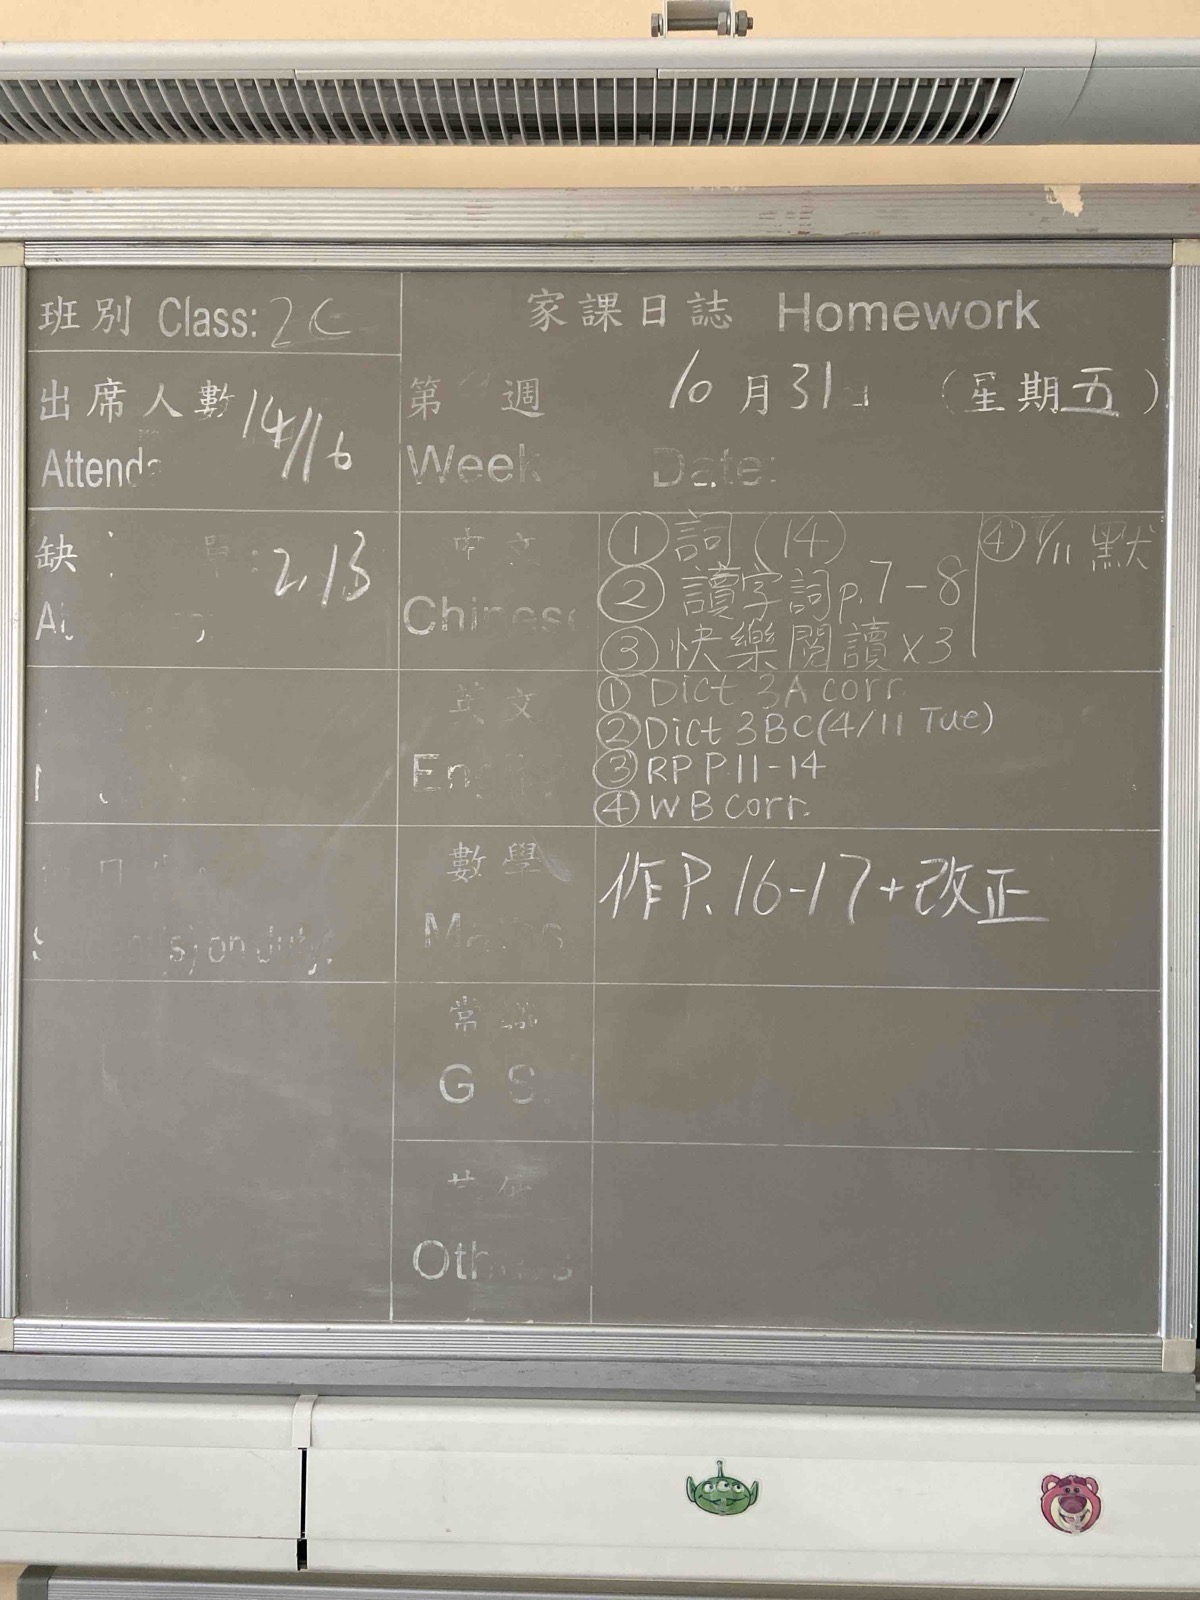 班別 Class: 2C
出席人數 14/16
缺 2, 13
家課日誌 Homework
第 週 10月31日 (星期五)
Week Date:
中文
Chinese
① 詞 (14)
② 讀字詞 p.7-8
③ 快樂閱讀 x3
④ 7/11 默
英文
① Dict 3A corr.
② Dict 3BC (4/11 Tue)
③ RP P.11-14
④ WB corr.
數學
作 P. 16-17 + 改正
常
G S.